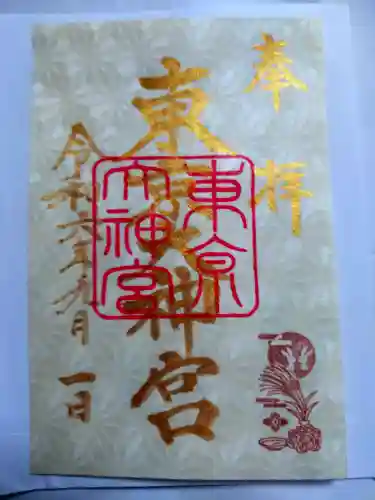 奉拝
東京大神宮
東京
大神宮
令和六年九月一日